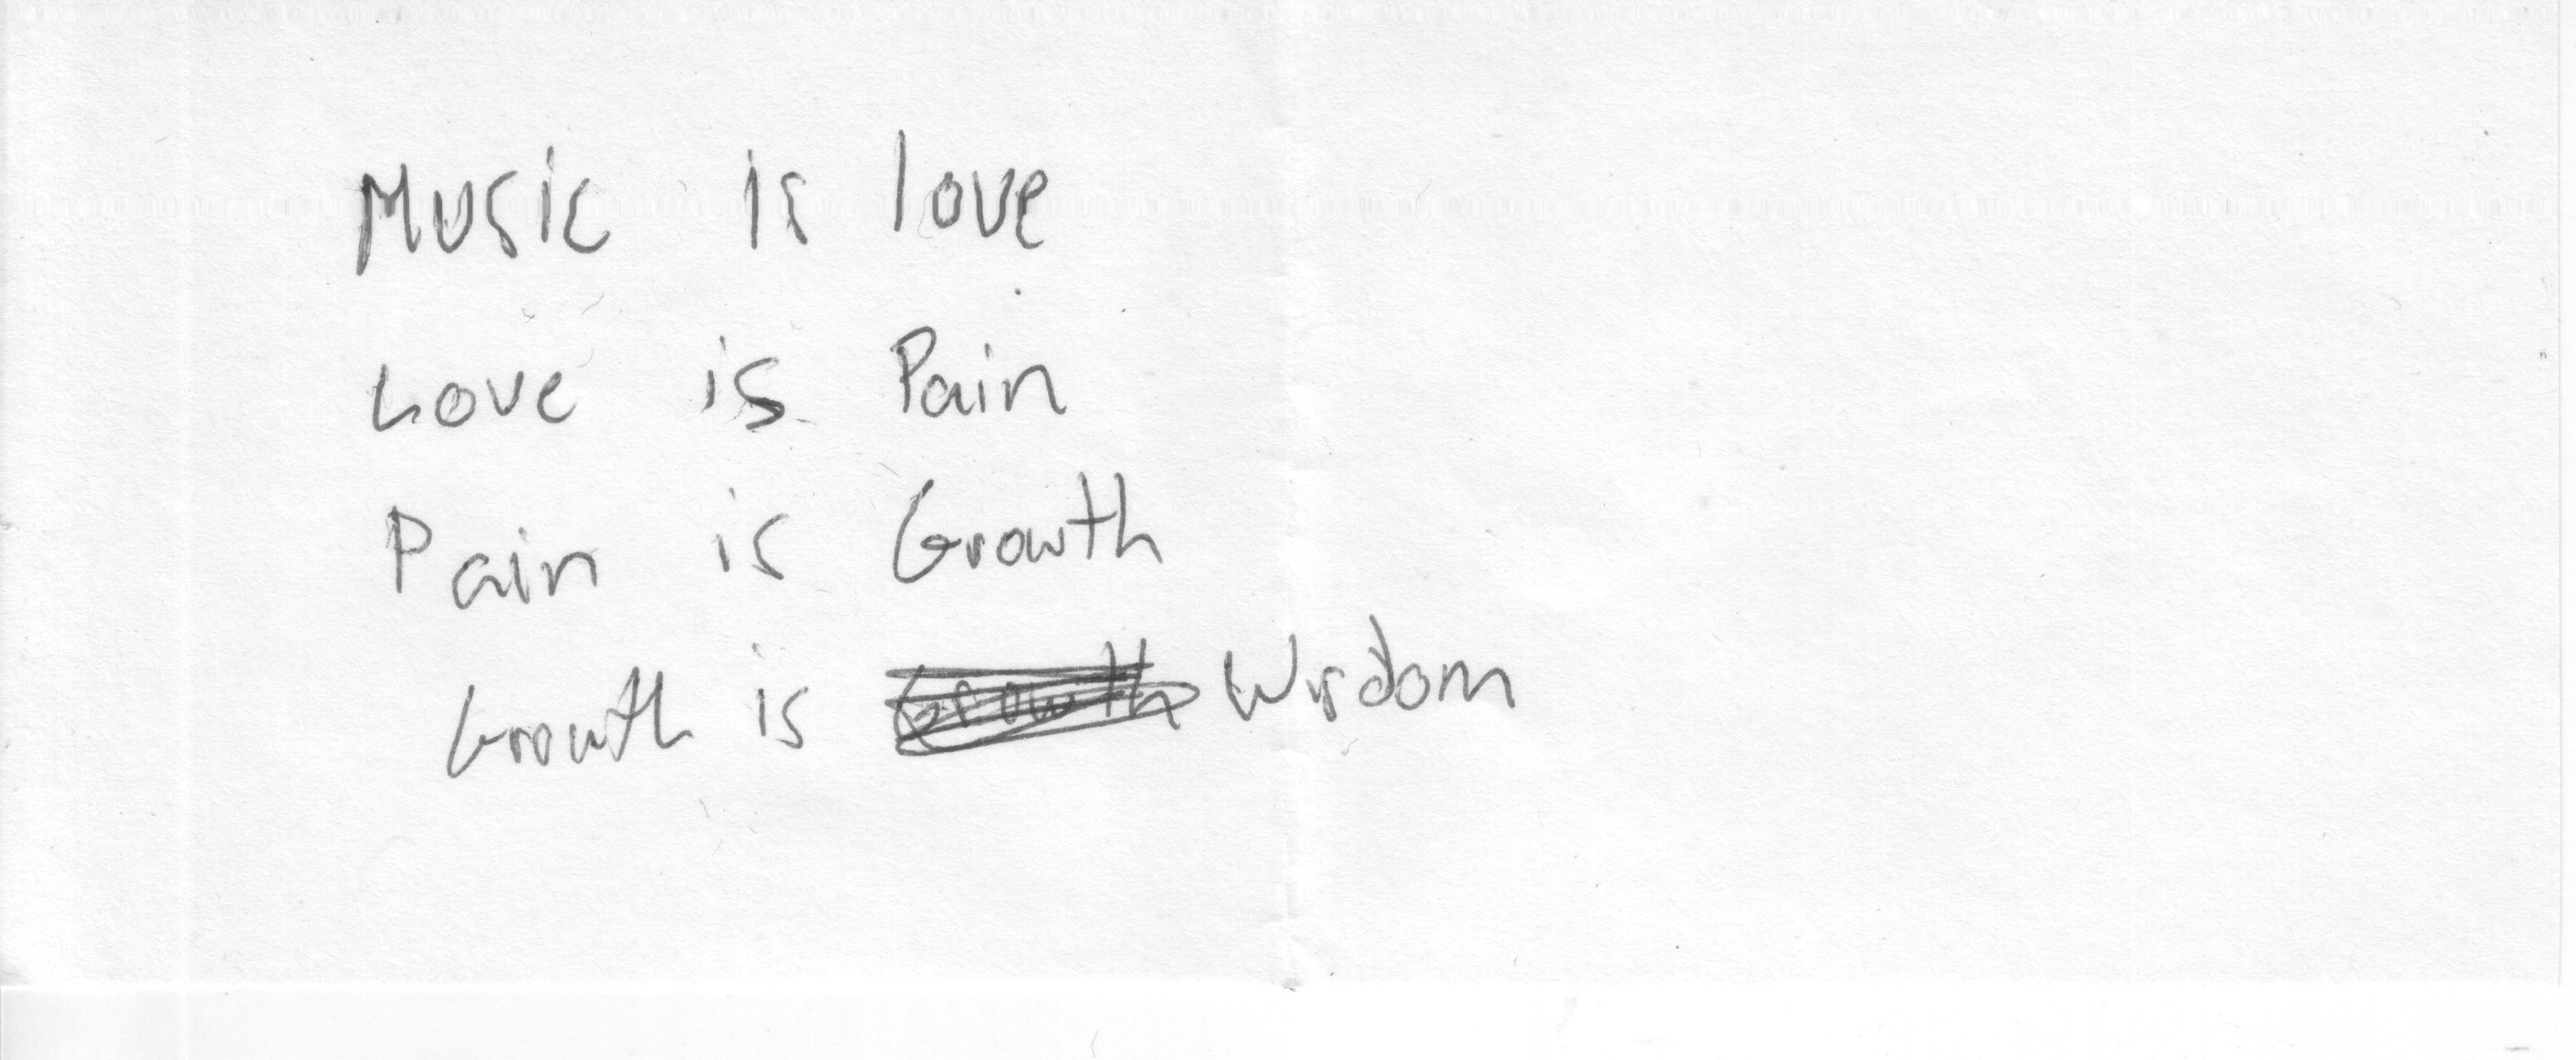 Music is love
Love is Pain
Pain is Growth
Growth is Growth Wisdom